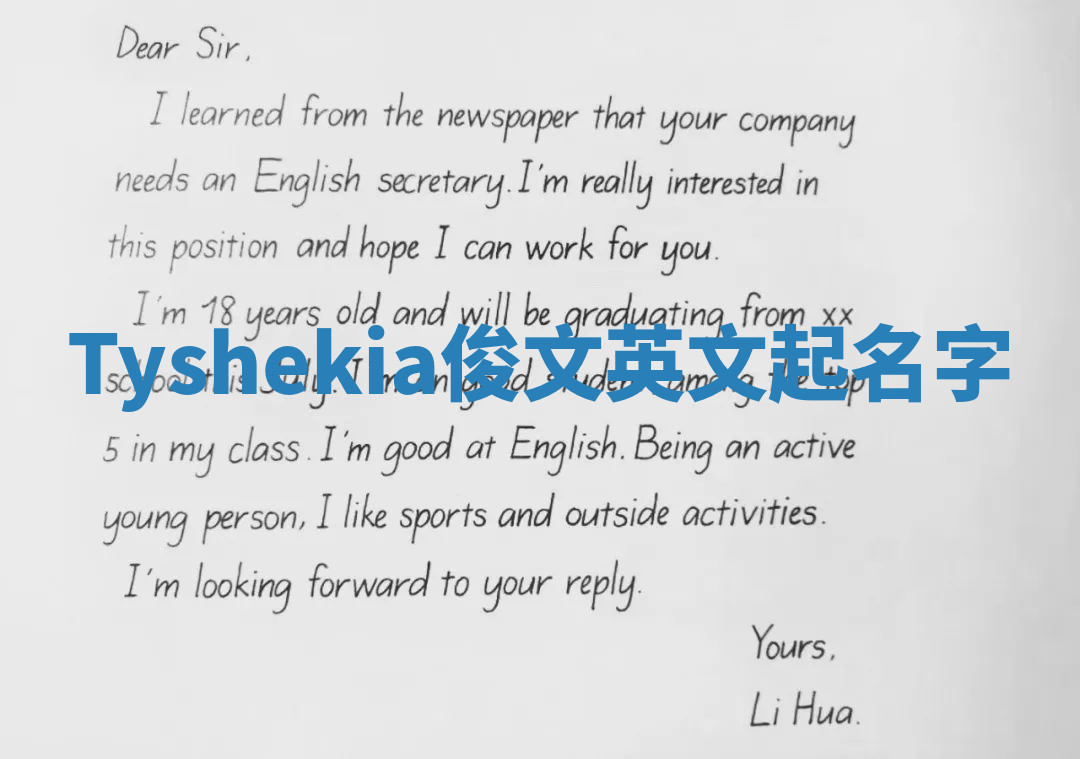 Dear Sir,
I learned from the newspaper that your company
needs an English secretary. I'm really interested in
this position and hope I can work for you.
I'm 18 years old and will be graduating from xx
Tyshekia俊文英文起名字
school this July. I'm an good student among the top
5 in my class. I'm good at English. Being an active
young person, I like sports and outside activities.
I'm looking forward to your reply.
Yours,
Li Hua.